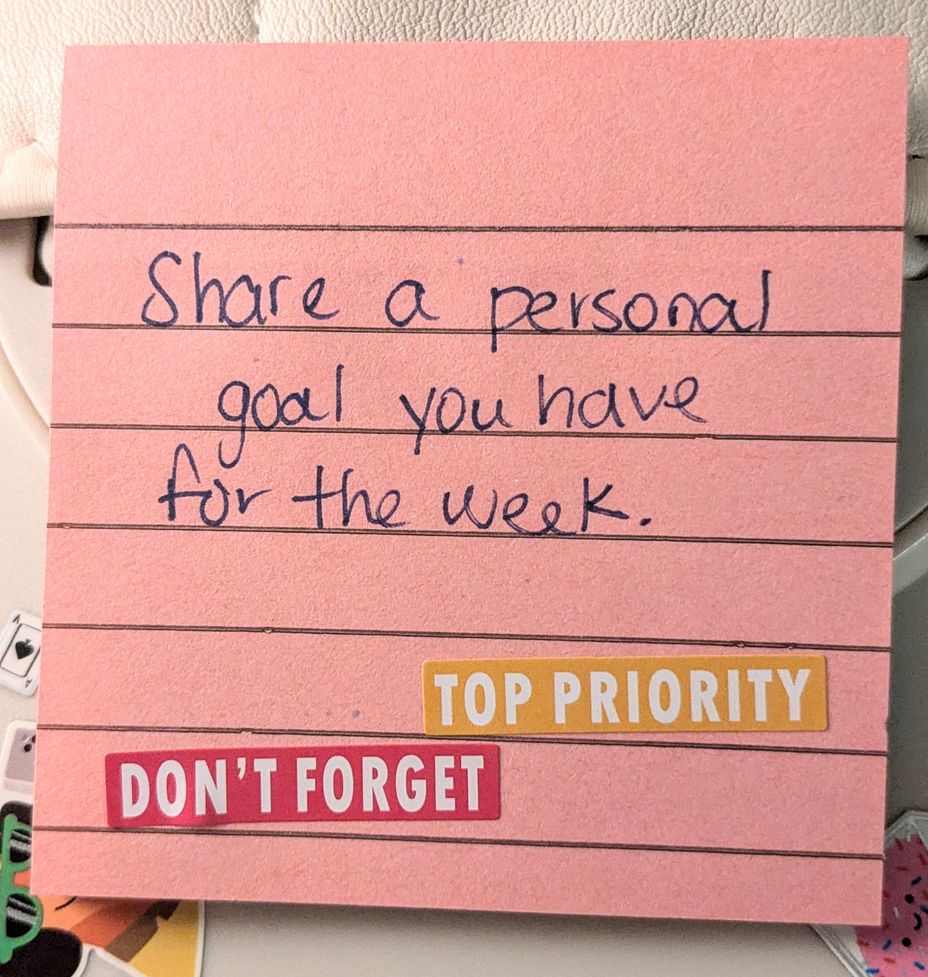 Share a personal
goal you have
for the week.
TOP PRIORITY
DON'T FORGET